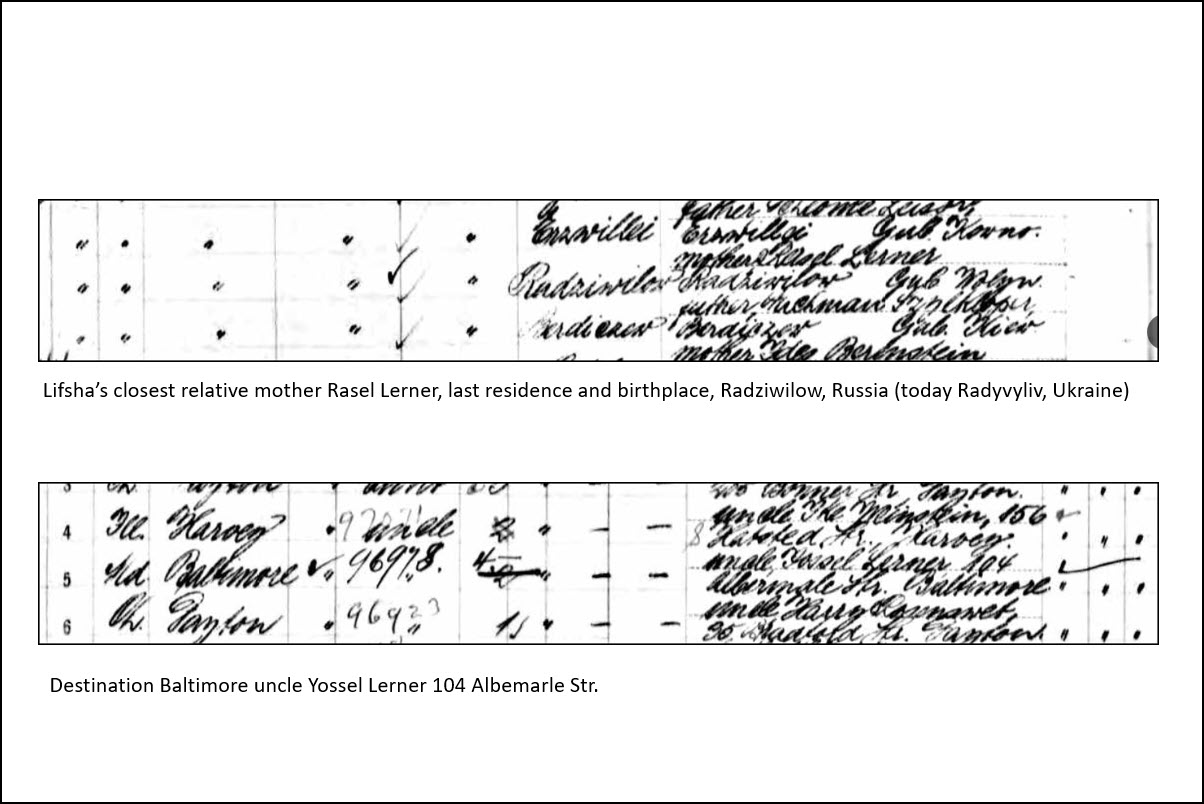 father
Erzwillei Erzwillei Gub. Kowno.
mother Rasel Lerner
Radziwilow Radziwilow Gub Wolyn
father, Nachman
Berdiczew Berdiczew Gub. Kiew
mother Ides Bernstein
Lifsha’s closest relative mother Rasel Lerner, last residence and birthplace, Radziwilow, Russia (today Radyvyliv, Ukraine)
3
uncle Ike Weinstein, 156
4 Ill. Harvey uncle Halsted Str. Harvey
uncle Yossel Lerner 104
5 Md Baltimore 96978. Albermale Str. Baltimore
uncle Harry
6 Oh. Dayton 96923 15 35 Bradford Str. Dayton
Destination Baltimore uncle Yossel Lerner 104 Albemarle Str.